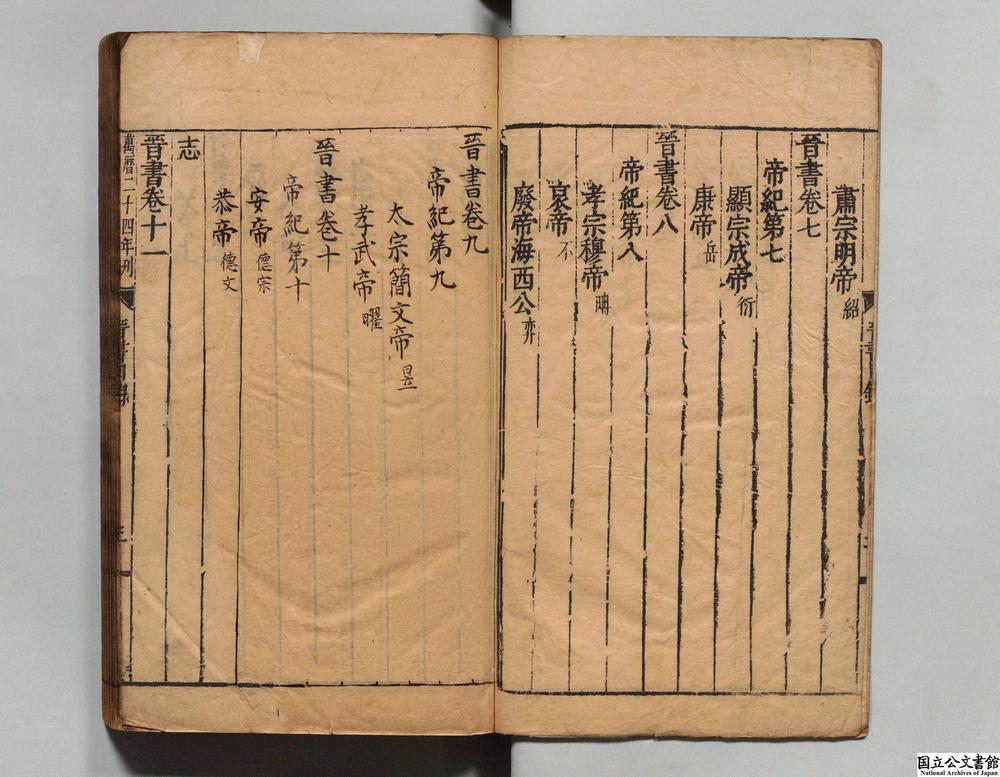 肅宗明帝 紹
晉書卷七
帝紀第七
顯宗成帝 衍
康帝 岳
晉書卷八
帝紀第八
孝宗穆帝
哀帝 不
廢帝海西公 弈
晉書卷九
帝紀第九
太宗簡文帝 昱
孝武帝 曜
晉書卷十
帝紀第十
安帝 德宗
恭帝 德文
志
晉書卷十一
萬曆二十四年刋
晉書目錄
三
国立公文書館
National Archives of Japan